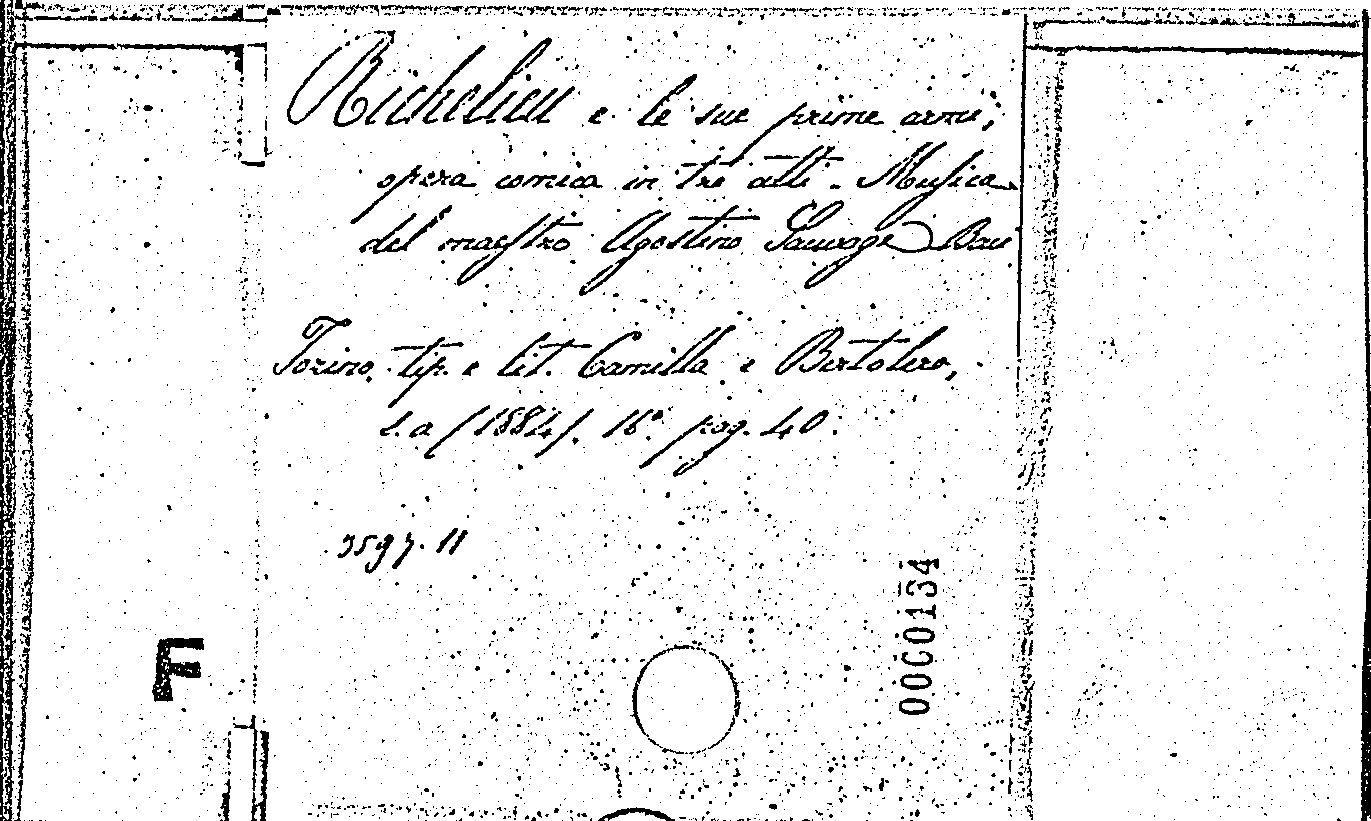 Richelieu e le sue prime armi;
opera comica in tre atti - Musica
del maestro Agostino Sauvage
Torino, tip. e lit. Camilla e Bertolero,
s. a (1884). 16°. pag. 40.
3597. 11
0000134
F